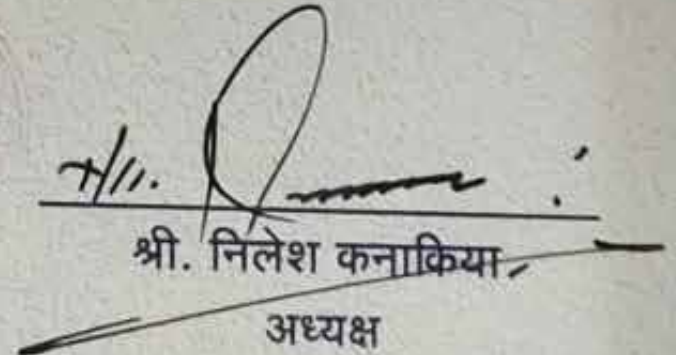 श्री. निलेश कनाकिया
अध्यक्ष